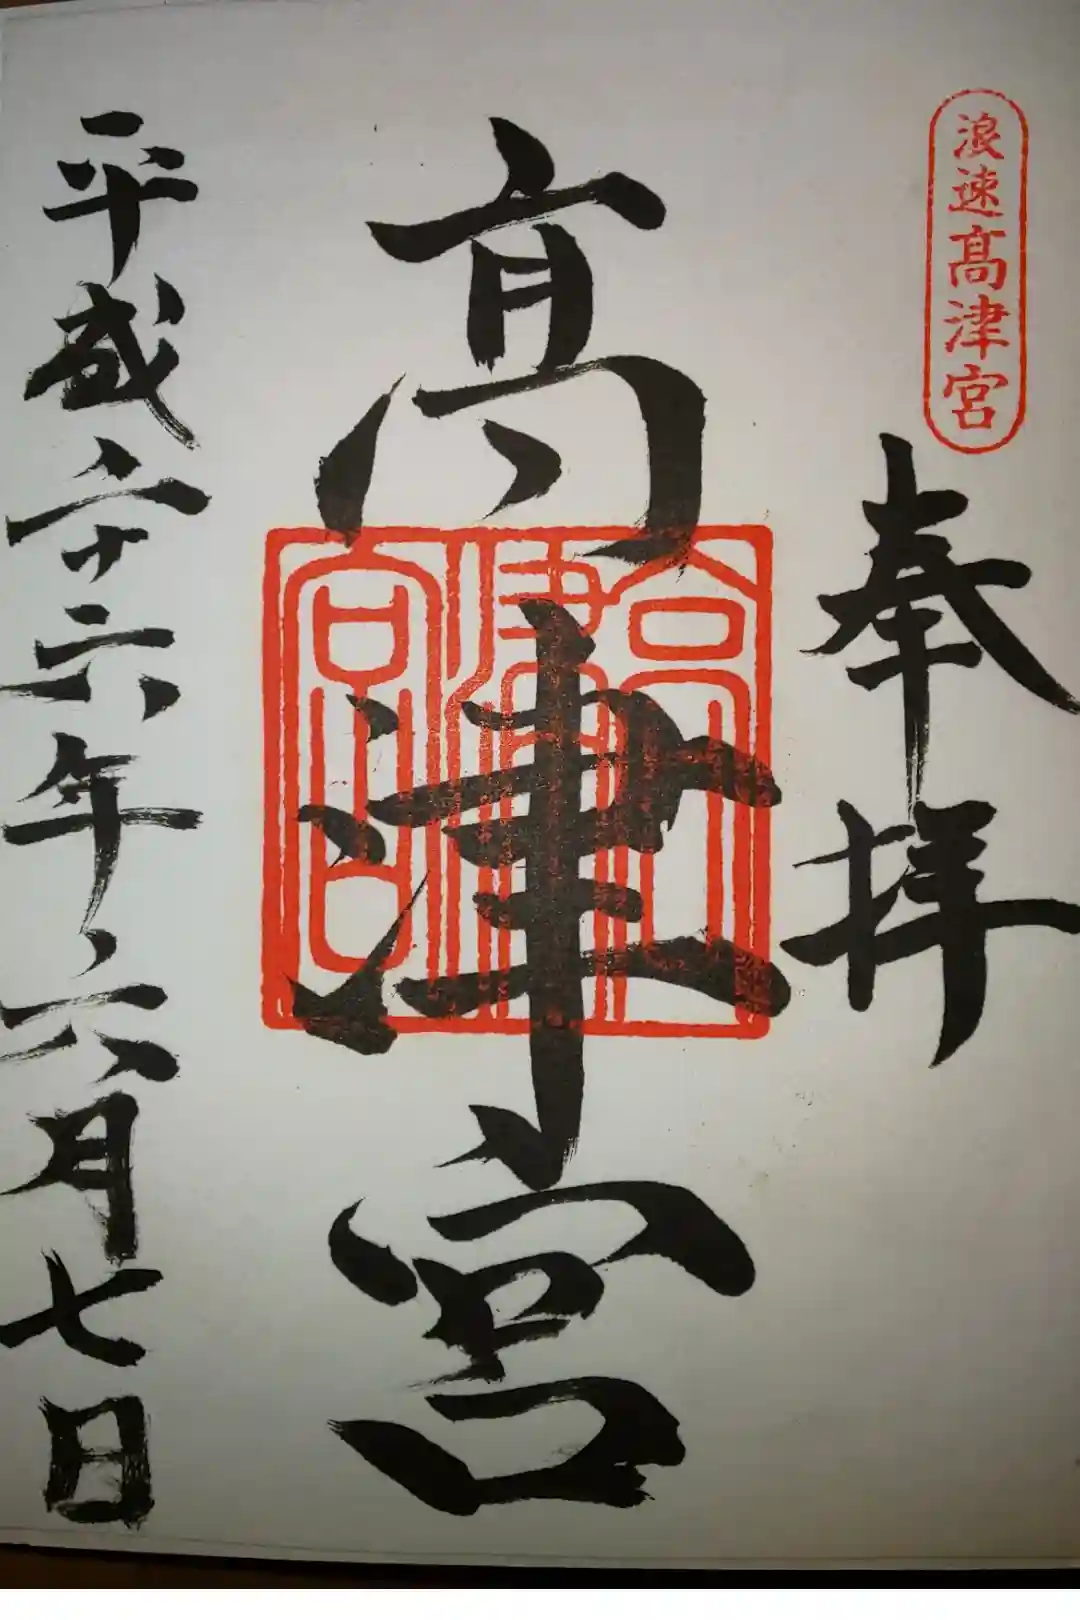 浪速髙津宮
奉拝
髙津宮
高津宮
平成二十六年六月七日